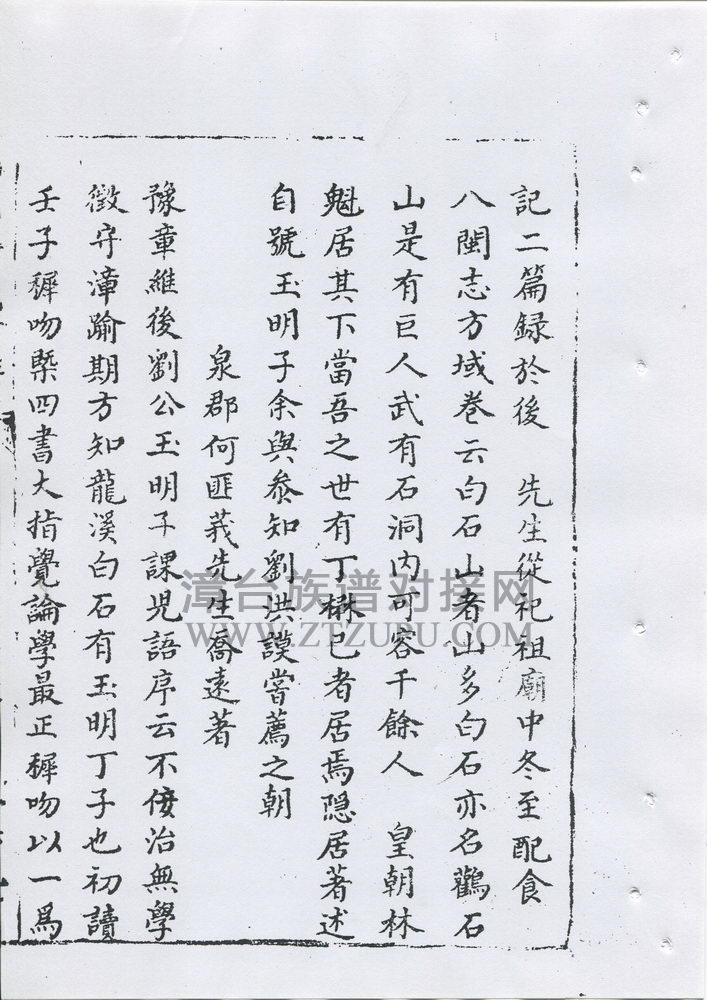 記二篇録於後　先生從祀祖廟中冬至配食
八閩志方域卷云白石山者山多白石亦名鸛石
山是有巨人武有石洞内可容千餘人　皇朝林
魁居其下當吾之世有丁楙巳者居焉隠居著述
自號玉明子余與叅知劉洪謨嘗薦之朝
泉郡何匪莪先生喬遠著
豫章維後劉公玉明子課児語序云不佞治無學
徵守漳踰期方知龍溪白石有玉明丁子也初讀
壬子穉吻槩四書大指覺論學最正穉吻以一爲
漳台族谱对接网
WWW.ZTZUPU.COM